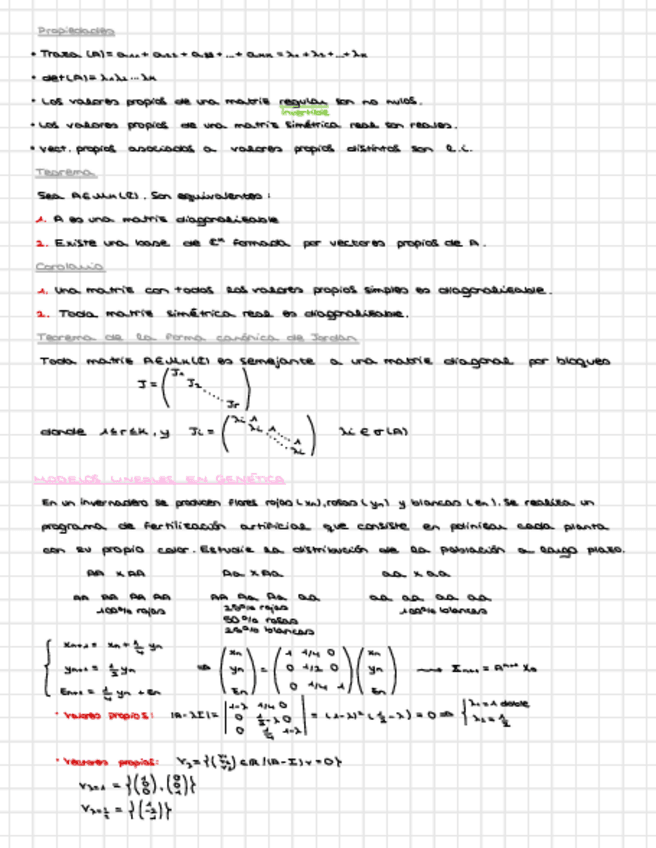 Propiedades
• Traza (A) = a₁₁ + a₂₂ + a₃₃ + ... + aₙₙ = λ₁ + λ₂ + ... + λₙ
• det(A) = λ₁λ₂ ... λₙ
• Los valores propios de una matriz regular son no nulos.
invertible
• Los valores propios de una matriz simétrica real son reales.
• Vect. propios asociados a valores propios distintos son l.i.
Teorema
Sea A∈Mₙ(ℂ). Son equivalentes:
1. A es una matriz diagonalizable
2. Existe una base de ℂⁿ formada por vectores propios de A.
Corolario
1. Una matriz con todos los valores propios simples es diagonalizable.
2. Toda matriz simétrica real es diagonalizable.
Teorema de la forma canónica de Jordan
Toda matriz A∈Mₙ(ℂ) es semejante a una matriz diagonal por bloques
J = ( J₁ J₂ ... Jr )
donde 1≤r≤n, y Ji = ( λi 1 λi 1 ... 1 λi ) λi ∈ σ(A)
MODELOS LINEALES EN GENÉTICA
En un invernadero se producen flores rojas (xn), rosas (yn) y blancas (zn). Se realiza un
programa de fertilización artificial que consiste en polinizar cada planta
con su propio color. Estudie la distribución de la población a largo plazo.
AA x AA Aa x Aa aa x aa
AA AA AA AA AA Aa Aa aa aa aa aa aa
100% rojas 25% rojas 100% blancas
50% rosas
25% blancas
xn+1 = xn + 1/4 yn
yn+1 = 1/2 yn
zn+1 = 1/4 yn + zn
⇒ ( xn yn zn ) = ( 1 1/4 0 0 1/2 0 0 1/4 1 ) ( xn yn zn )
• Valores propios: |A-λI| = | 1-λ 1/4 0 0 1/2-λ 0 0 1/4 1-λ | = (1-λ)² (1/2-λ) = 0 ⇒ { λ₁=1 doble λ₂=1/2
• Vectores propios: